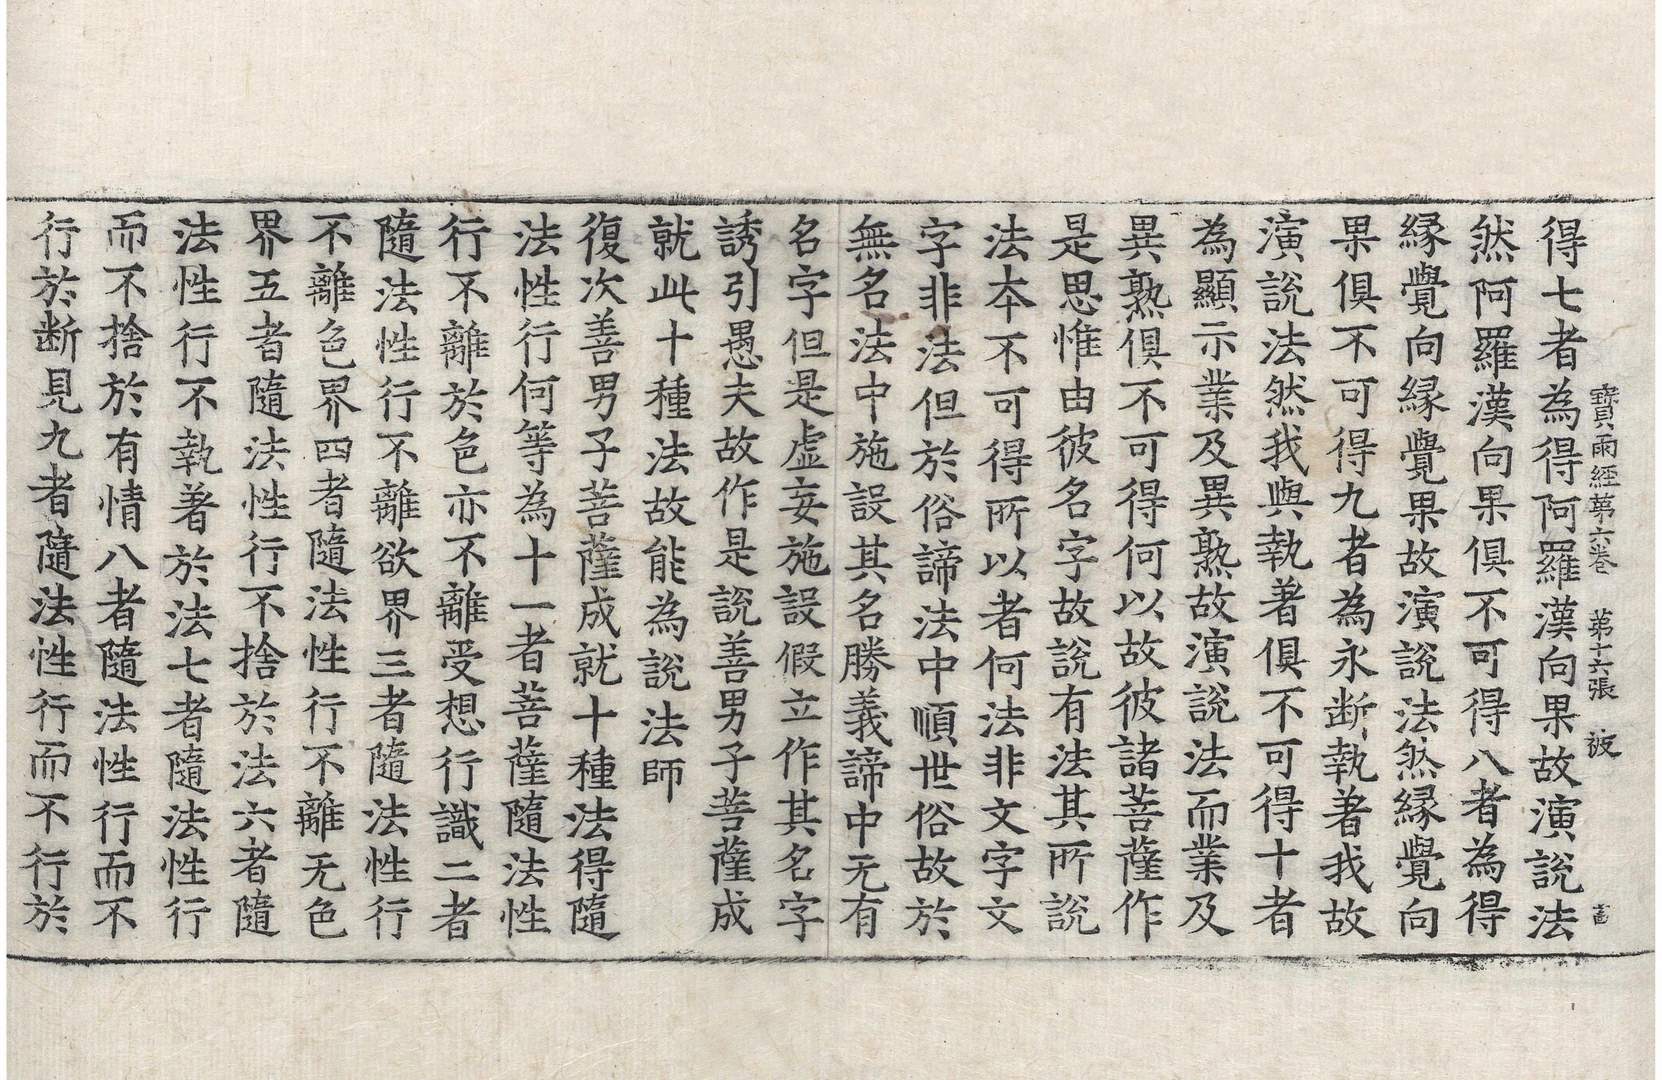 寶雨經苐六卷 苐十六張 被
得七者為得阿羅漢向果故演說法
然阿羅漢向果俱不可得八者為得
縁覺向縁覺果故演說法然縁覺向
果俱不可得九者為永断執著我故
演說法然我與執著俱不可得十者
為顯示業及異熟故演說法而業及
異熟俱不可得何以故彼諸菩薩作
是思惟由彼名字故說有法其所說
法夲不可得所以者何法非文字文
字非法但於俗諦法中順世俗故於
無名法中施設其名勝義諦中无有
名字但是虚妄施設假立作其名字
誘引愚夫故作是說善男子菩薩成
就此十種法故能為說法師
復次善男子菩薩成就十種法得隨
法性行何等為十一者菩薩隨法性
行不離於色亦不離受想行識二者
隨法性行不離欲界三者隨法性行
不離色界四者隨法性行不離无色
界五者隨法性行不捨於法六者隨
法性行不執著於法七者隨法性行
而不捨於有情八者隨法性行而不
行於断見九者隨法性行而不行於